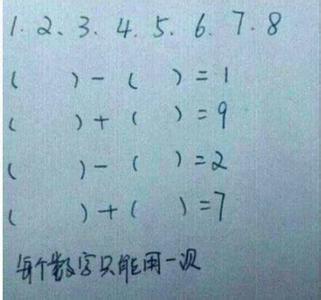 1.2、3.4.5.6.7.8
(  )-(  )=1
(  )+(  )=9
(  )-(  )=2
(  )+(  )=7
每个数字只能用一次